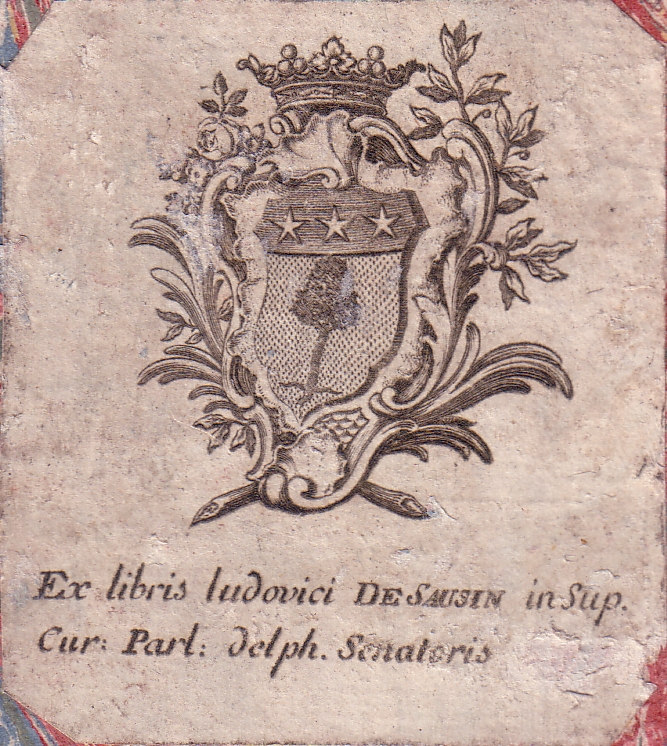 Ex libris ludovici DE SAUSIN in Sup.
Cur: Parl: delph. Senatoris